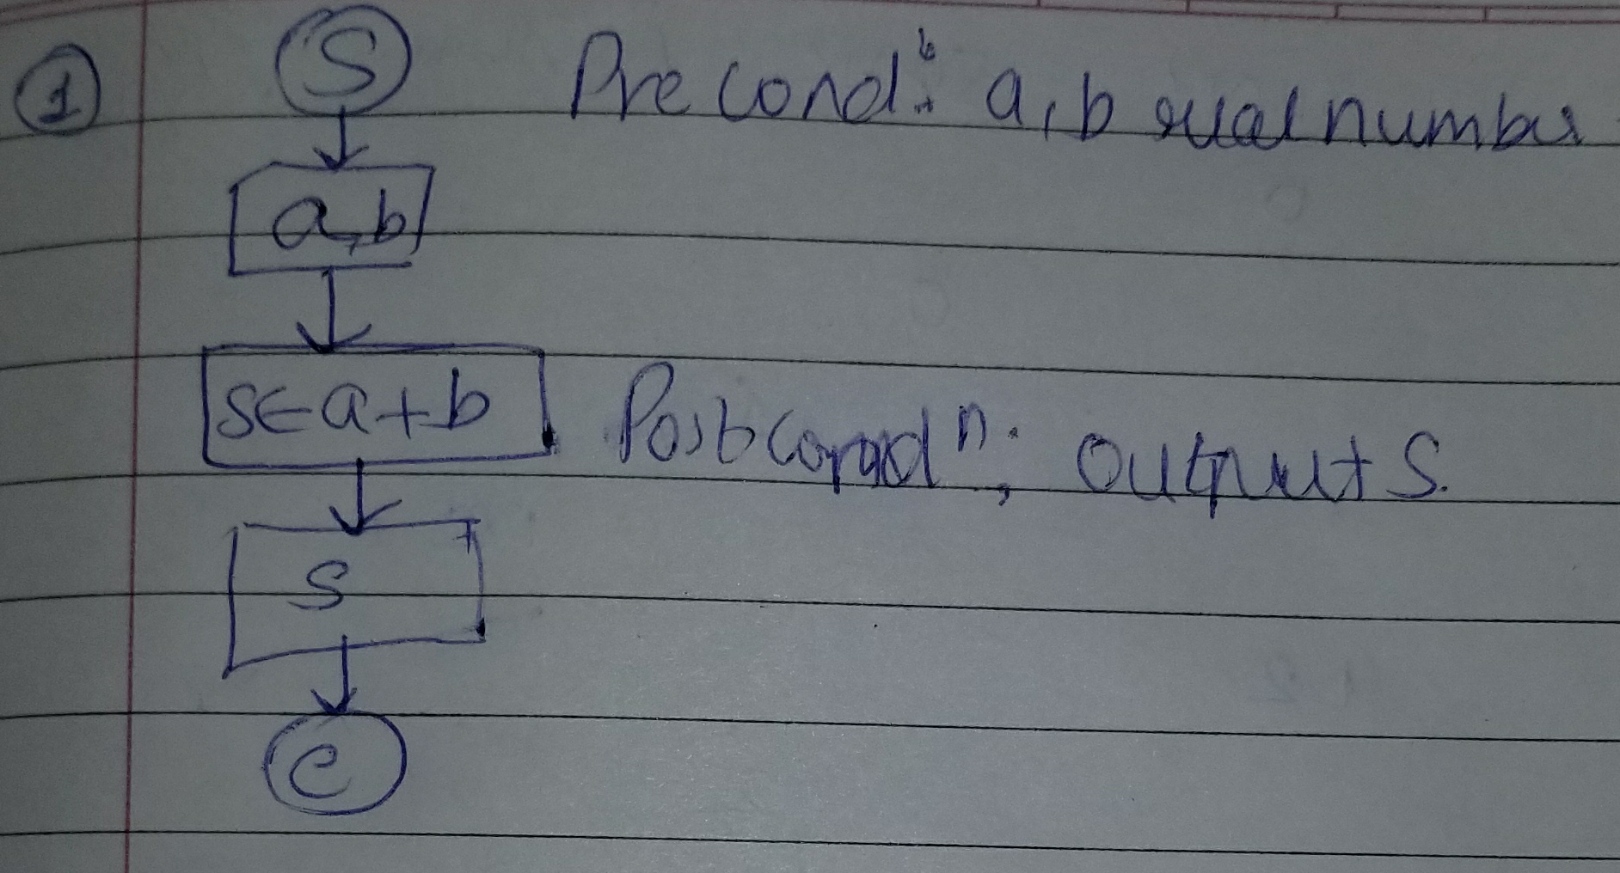 1
S Precondⁿ: a, b real number
a, b
S ← a + b Postcondⁿ: output S.
S
e